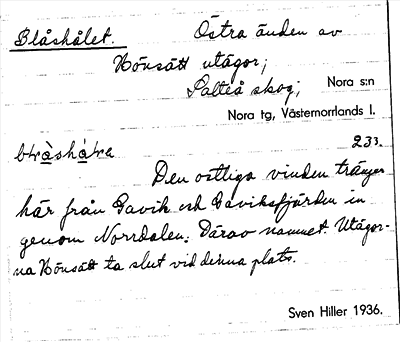 Blåshålet. Östra änden av
Hönsätt utägor;
Salteå skog; Nora s:n
Nora tg, Västernorrlands l.
233.
Den ostliga vinden tränger
här från Gavik och Gaviksfjärden in
genom Norrdalen. Därav namnet. Utägor-
na Hönsätt ta slut vid denna plats.
Sven Hiller 1936.